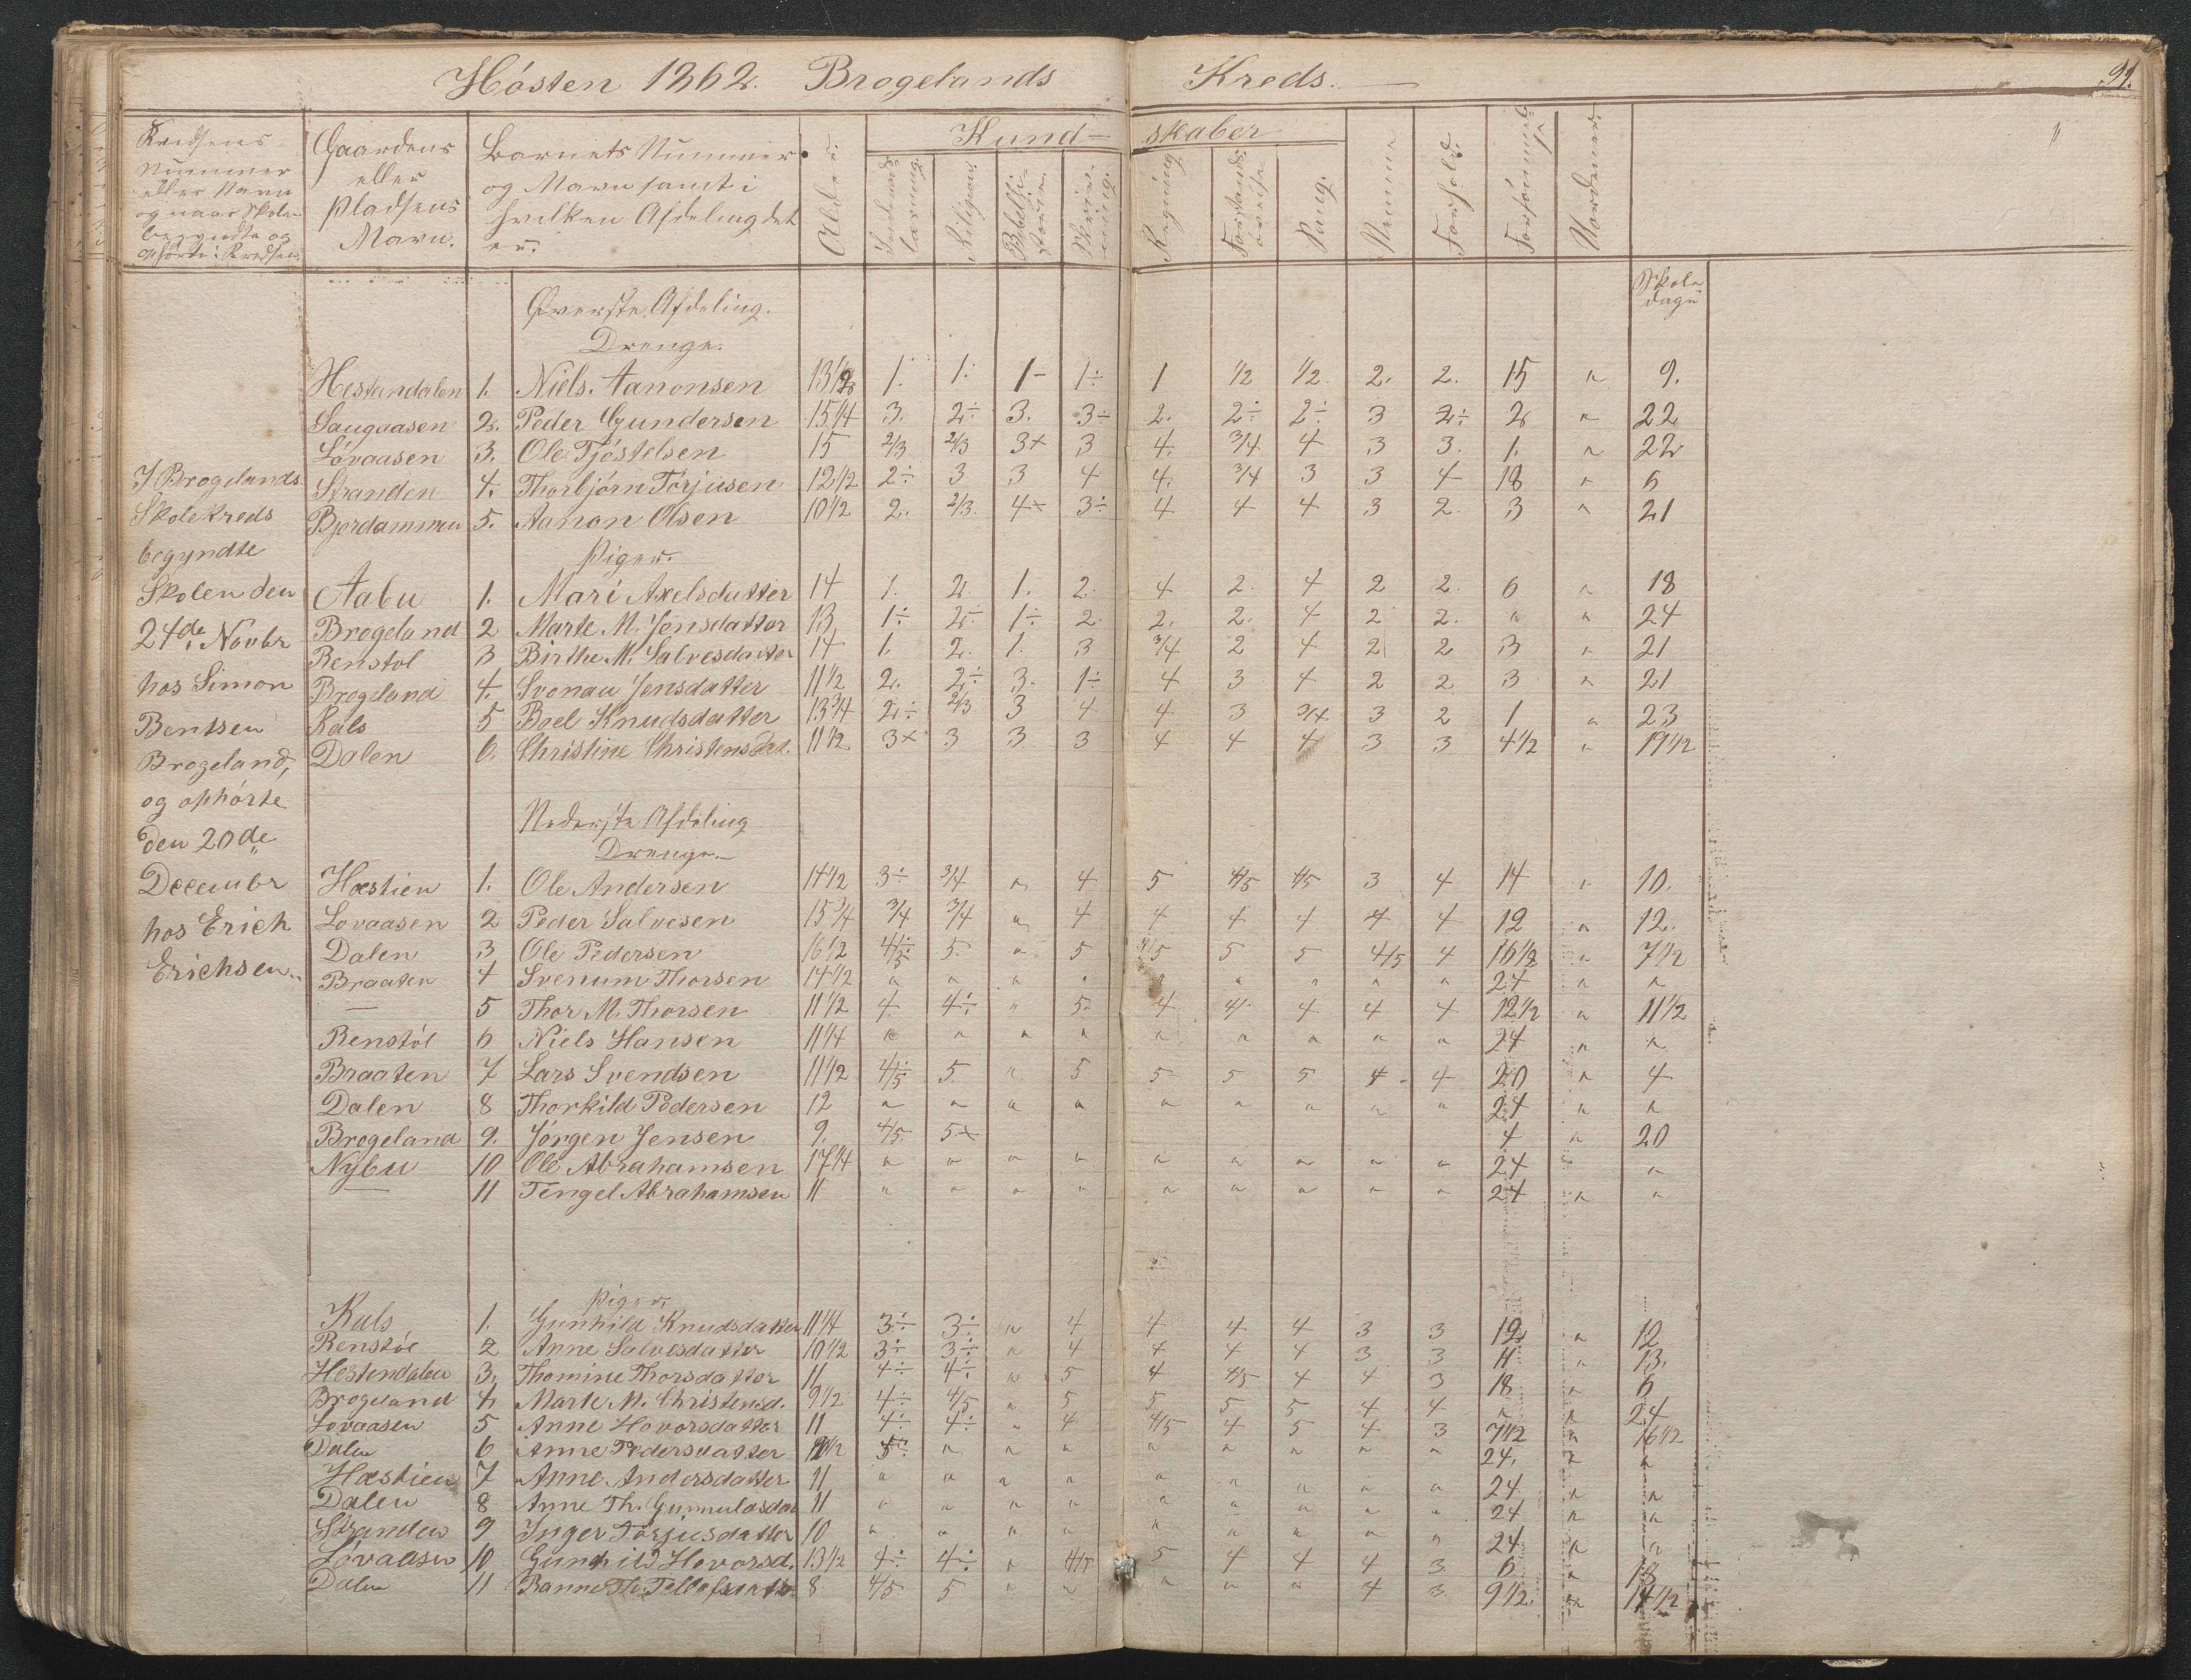 Hösten 1862. Brogelands Kreds.
91.
Kredsens Nummer eller Navn og naar Skolen begyndte og ophörte i Kredsen.
Gaardens eller Pladsens Navn.
Barnets Nummer og Navn samt i hvilken Afdeling det er.
Alder.
Kundskaber
Religion
Skrivning.
Regning
Sang.
Nemme
Forhold.
Skoledage
I Brogelands
Skolekreds
begyndte
Skolen den
24de Novbr
hos Simon
Bentsen
Brogeland,
og ophörte
den 20de
Decembr
hos Erich
Erichsen
Øverste Afdeling.
Drenge.
Hestandalen 1. Niels Aanonsen 13 1/2 1. 1. 1- 1÷ 1 1/2 1/2 2. 2. 15 " 9.
Saugaasen 2. Peder Gundersen 15 1/4 3. 2÷ 3. 3÷ 2. 2÷ 2÷ 3 2÷ 2 " 22
Lövaasen 3. Ole Tjöstelsen 15 2/3 2/3 3+ 3 4. 3/4 4 3 3. 1. " 22
Stranden 4. Thorbjörn Torjusen 12 1/2 2÷ 3 3 4 4. 3/4 3 3 4 18 " 6
Bjordammen 5. Aanon Olsen 10 1/2 2. 2/3 4+ 3÷ 4 4 4 3 2. 3 " 21
Piger.
Aabu 1. Mari Axelsdatter 14 1. 2. 1. 2. 4 2. 4 2 2. 6 " 18
Brogeland 2 Marte M. Jensdatter 13 1÷ 2÷ 1÷ 2. 2. 2. 4 2 2. " " 24
Renstol 3 Birthe M. Salvesdatter 14 1. 2. 1. 3 3/4 2 4 2 2 3 " 21
Brogeland 4. Svonau Jensdatter 11 1/2 2. 2÷ 3. 1÷ 4 3 4 2 2 3 " 21
Rals 5 Brel Knudsdatter 13 3/4 2÷ 2/3 3 4 4 3 3/4 3 2 1 " 23
Dalen 6. Christine Christensdat. 11 1/2 3+ 3 3 3 4 4 4 3 3 4 1/2 " 19 1/2
Nederste Afdeling
Drenge.
Hæstien 1. Ole Andersen 14 1/2 3÷ 3/4 " 4 5 4/5 4/5 3 4 14 " 10.
Lovaasen 2 Peder Salvesen 15 3/4 3/4 3/4 " 4 4 4 4 4 4 12 " 12.
Dalen 3 Ole Pedersen 16 1/2 4/5÷ 5. " 5 4/5 5 5 4/5 4 16 1/2 " 7 1/2
Braaten 4 Svenum Thorsen 14 1/2 " " " " " " " " " 24 " "
— 5 Thor M. Thorsen 11 1/2 4. 4÷ " 5. 4 4 4 4 4 12 1/2 " 11 1/2
Renstöl 6 Niels Hansen 11 1/4 " " " " " " " " " 24 " "
Braaten 7 Lars Svendsen 11 1/2 4/5÷ 5. " 5 5 5 5 4 4 20 " 4
Dalen 8 Thorkild Pedersen 12 " " " " " " " " " 24 " "
Brogeland 9. Jörgen Jensen 9. 4/5. 5+ 4 " 20
Nybu 10 Ole Abrahamsen 17 1/4 " " " " " " " " " 24 "
— 11 Tengel Abrahamsen 11 " " " " " " " " " 24 " "
Piger.
Rals 1. Gunhild Knudsdatter 11 1/4 3÷ 3÷ " 4 4 4 4 3 3 12 " 12
Renstöl 2 Anne Salvesdatter 10 1/2 3÷ 3÷ " 4 4 4 4 3 3 11 " 13.
Hestendalen 3. Thomine Thorsdatter 11 4÷ 4÷ " 5 4 4/5 4 4 3 18 " 6
Brogeland 4 Marte M. Christensd. 9 1/2 4÷ 4/5 " 5 5 5 5 4 4 " " 24
Lovaasen 5 Anne Hovorsdatter 11 4÷ 4÷ " 4 4/5 4 5 4 3 7 1/2 " 16 1/2
Dalen 6 Anne Pedersdatter 5 " " " " " " " " 24. " "
Hæstien 7 Anne Andersdatter 11 " " " " " " " " " 24 " "
Dalen 8 Anne Th. Gunnulosdat 11 " " " " " " " " " 24 " "
Stranden 9 Inger Torjusdatter 10 " " " " " " " " " 24 " "
Lövaasen 10 Gunhild Hovorsd. 13 1/2 4÷ 4÷ " 4/5 5 4 4 4 3 6 " 18
Dalen 11 8 4/5 5 " " " " " 4 3 9 1/2 " 14 1/2